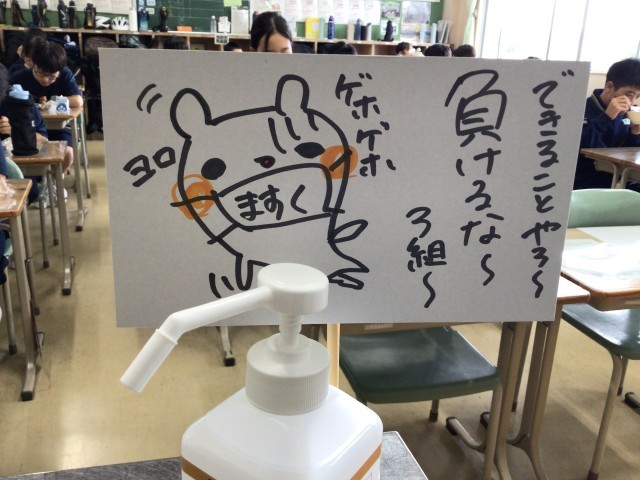 できることやろ〜
負けるな〜
3組〜
ゲホゲホ
ヨロ
ますく